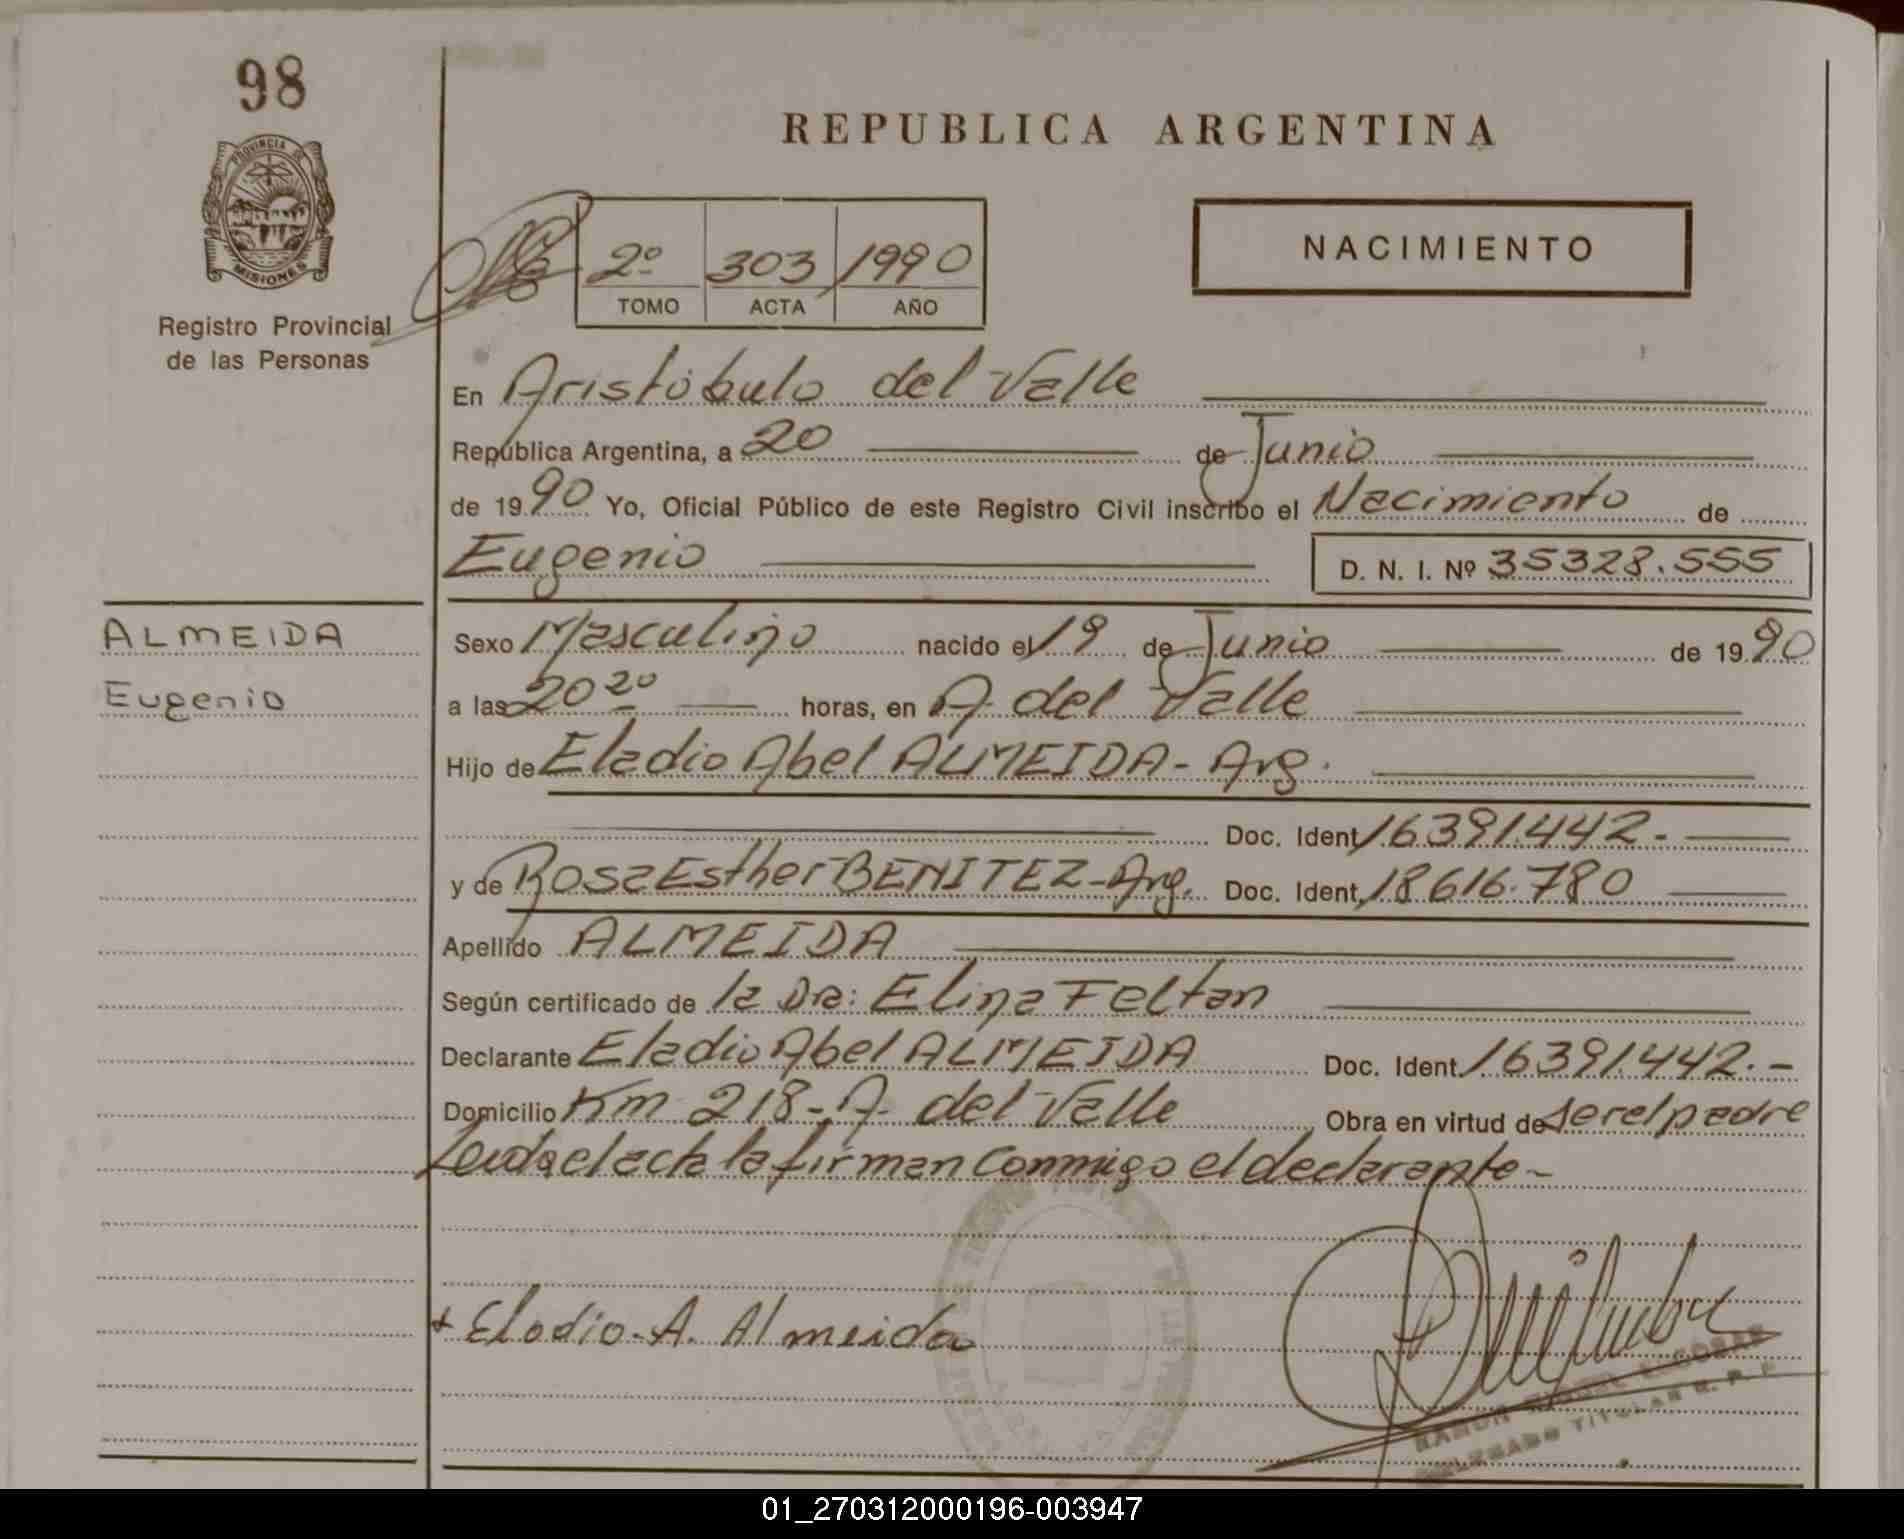 98
REPUBLICA ARGENTINA
PROVINCIA DE
MISIONES
Registro Provincial
de las Personas
2º 303 1990
TOMO ACTA AÑO
NACIMIENTO
En Aristóbulo del Valle
República Argentina, a 20 de Junio
de 1990 Yo, Oficial Público de este Registro Civil inscribo el Nacimiento de
Eugenio D. N. I. Nº 35328.555
ALMEIDA
Eugenio
Sexo Masculino nacido el 19 de Junio de 1990
a las 20 20 horas, en A. del Valle
Hijo de Eladio Abel ALMEIDA - Arg.
Doc. Ident. 16391.442.-
y de Rosa Esther BENITEZ - Arg. Doc. Ident. 18616.780
Apellido ALMEIDA
Según certificado de la Dra: Elina Feltan
Declarante Eladio Abel ALMEIDA Doc. Ident. 16391.442.-
Domicilio Km 218 - A. del Valle Obra en virtud de ser el padre
Leida el acta la firman conmigo el declarante-
Eladio. A. Almeida
RAMON
DELEGADO TITULAR R. P. P.
01_270312000196-003947